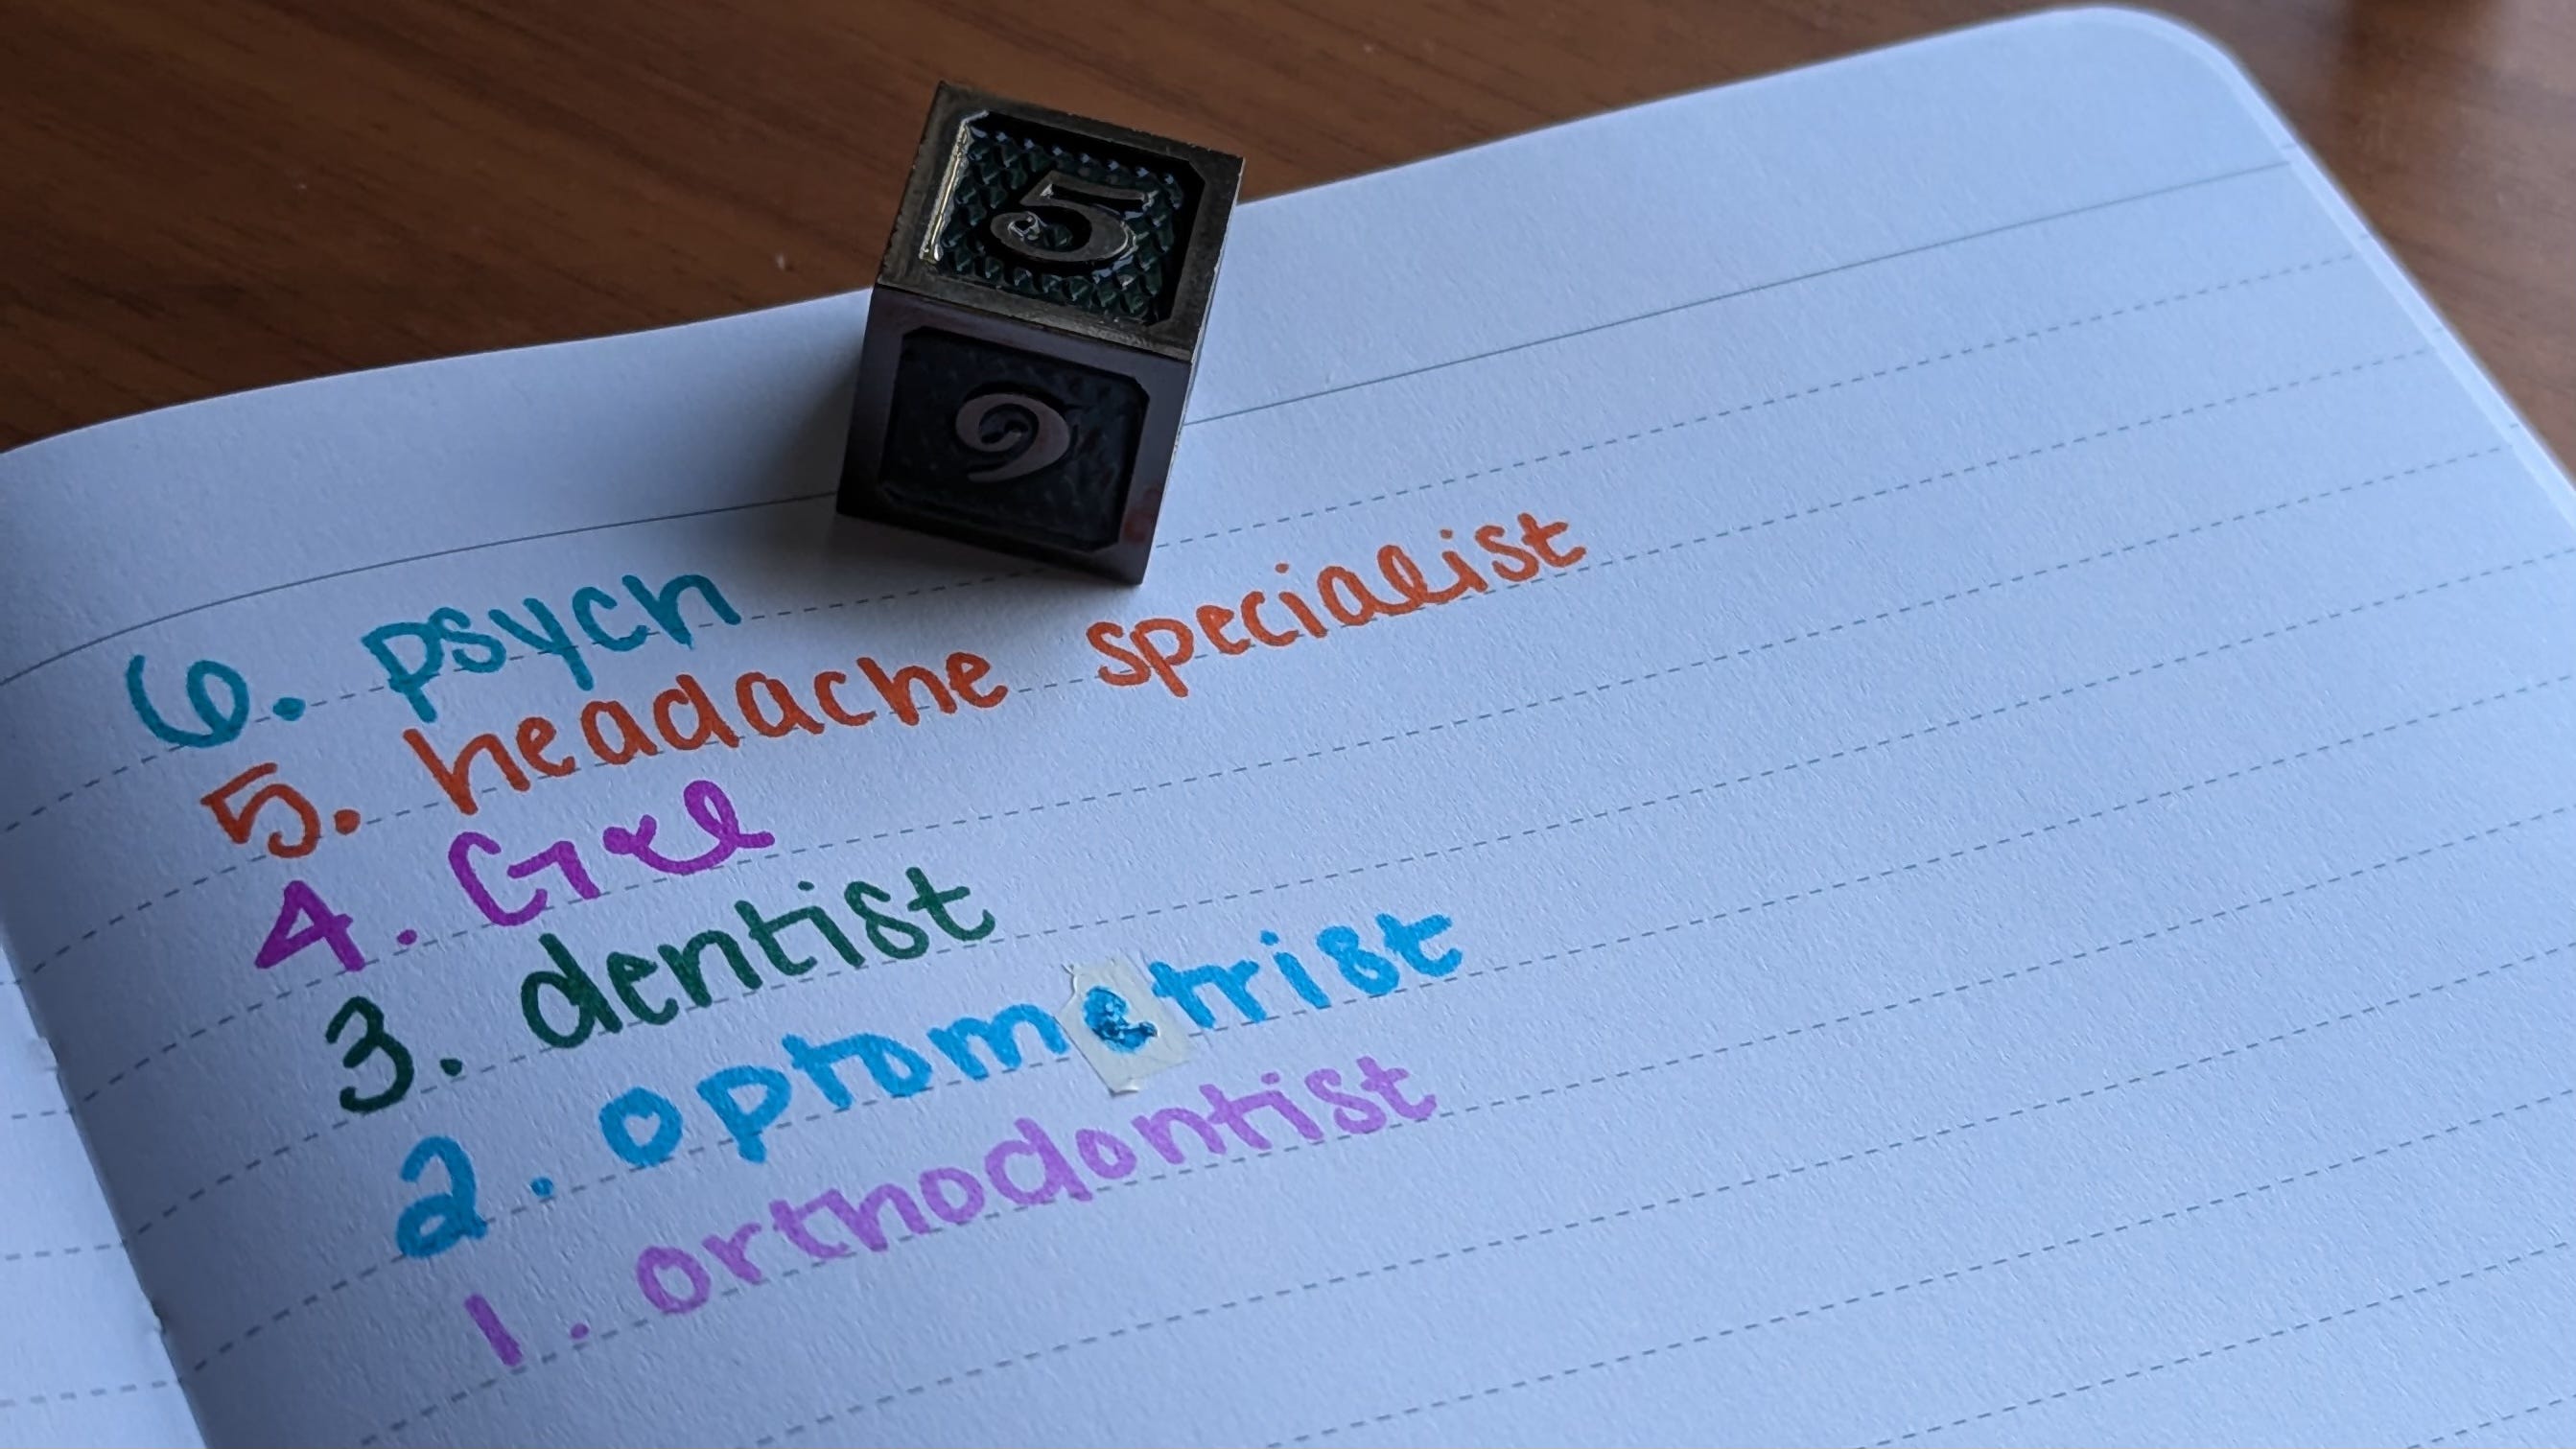 5
6
6. psych
5. headache specialist
4. Gael
3. dentist
2. optometrist
1. orthodontist